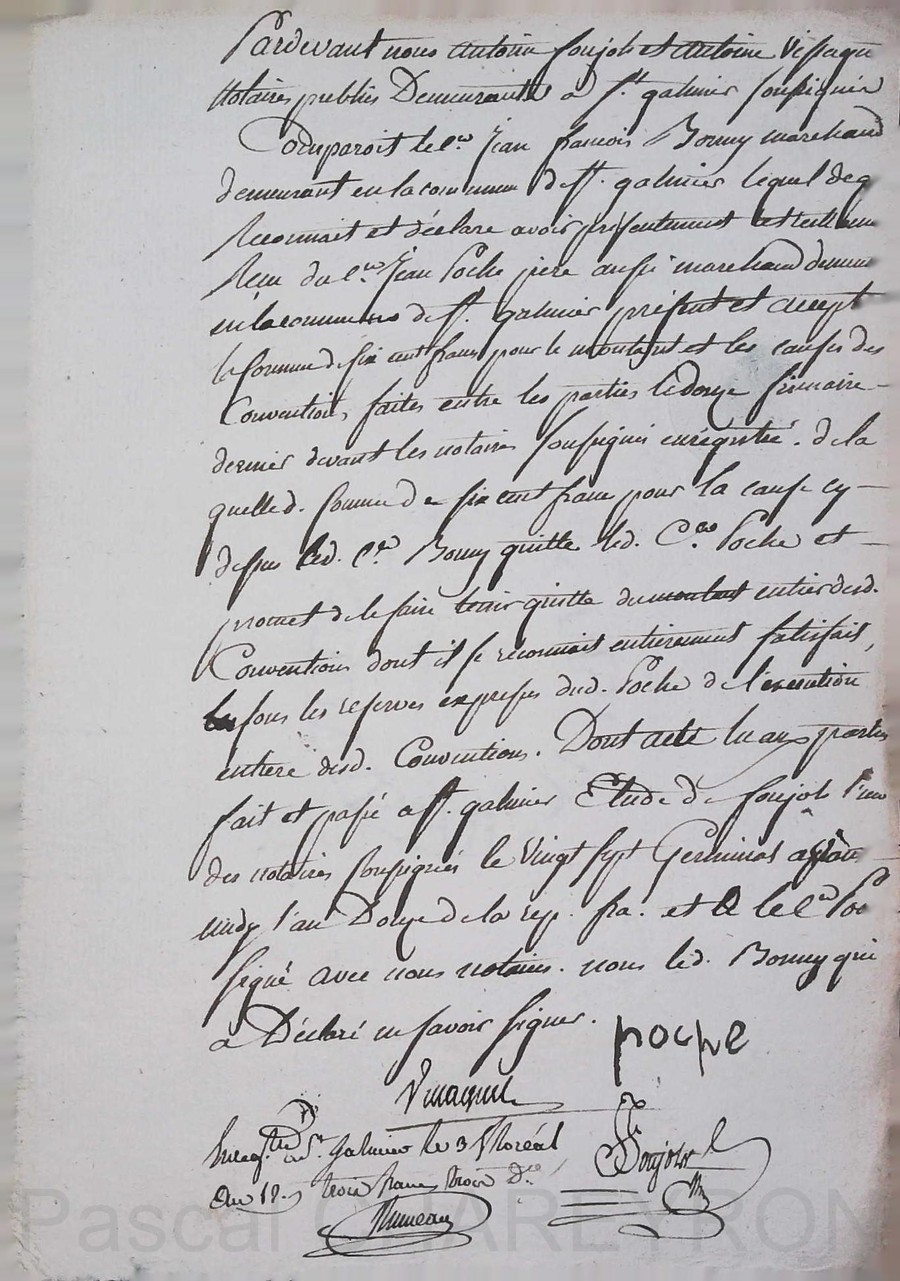 Pardevant nous antoine soujol et antoine
Notaires publics Demeurants a st. galmier soussignés
Comparoit le cen. jean francois Bonny marchand
demeurant en la commune de st. galmier lequel de g
Reconnait et déclare avoir présentement et réellem
Recu du cen. jean Poche père aussi marchand demeu
en la commune de st. galmier présent et accept
la somme de six cent francs pour le montant et les causes des
Conventions faites entre les parties le douze frimaire
dernier devant les notaires soussignés enregistré. de la
quelle d. somme de six cent francs pour la cause cy
dessus led. cen. Bonny quitte led. Cen. Poche et
promet de le faire tenir quitte du montant entier desd.
Conventions dont il se reconnait entièrement satisfait,
sous les reserves expresses dud. Poche de l'execution
entiere desd. Conventions. Dont acte lu aux parties
fait et passé a st. galmier Etude de soujol l'un
des notaires soussignés le vingt sept Germinal
midy l'an Douze de la rep. fra. et le cen Poc
signé avec nous notaires. nous led. Bonny qui
a Déclaré ne savoir signer.
poche
Enregtré. a st. Galmier le 3 floréal
an 12. trois francs trois d.es
Soujol
Pascal CHAREYRON